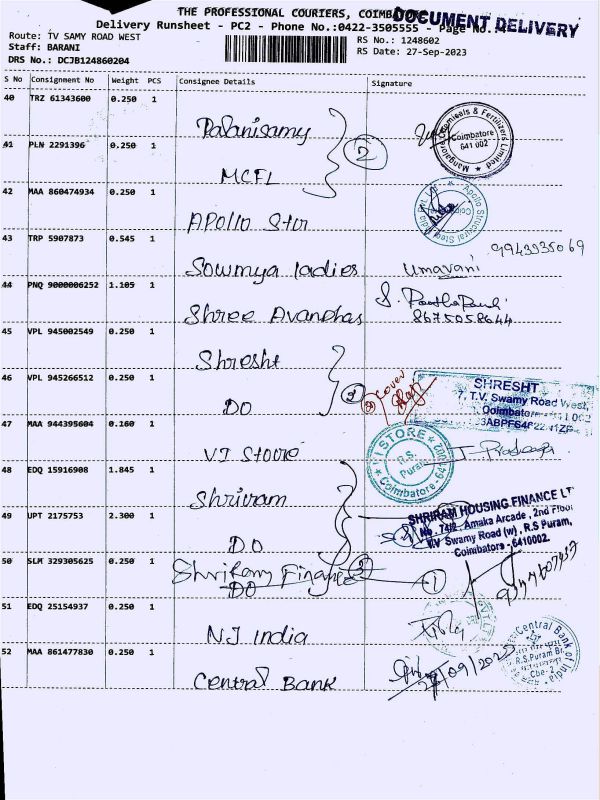 THE PROFESSIONAL COURIERS,
DOCUMENT DELIVERY
Delivery Runsheet - PC2 - Phone No.:0422-3505555 - Page No.
Route: TV SAMY ROAD WEST
RS No.: 1248602
Staff: BARANI
RS Date: 27-Sep-2023
DRS No.: DCJB124860204
S No Consignment No Weight PCS Consignee Details Signature
40 TRZ 61343600 0.250 1
Palanisamy
Mangalore Chemicals & Fertilizers Limited
Coimbatore
641 002
41 PLN 2291396 0.250 1
2
MCFL
42 MAA 860474934 0.250 1
Apollo Stur
Apollo Structural Steel India Pvt Ltd
43 TRP 5907873 0.545 1
9943935069
Sowmya ladies Umavani
44 PNQ 9000006252 1.105 1
Shree Avanphas
8675058644
45 VPL 945002549 0.250 1
Shresht
46 VPL 945266512 0.250 1
DO
SHRESHT
7, T.V. Swamy Road West,
47 MAA 944395604 0.160 1
VI Stoore
VI STORE
R.S. Puram
Coimbatore-
48 EDQ 15916908 1.845 1
Shriram
SHRIRAM HOUSING FINANCE LT
No. 74/2, Amaka Arcade, 2nd Floor
V.V Swamy Road (w), R.S Puram,
Coimbators - 6410002.
49 UPT 2175753 2.300 1
DO
50 SLM 329305625 0.250 1
Shriram Finance
DO
1
51 EDQ 25154937 0.250 1
NJ India
52 MAA 861477830 0.250 1
Central Bank
Central Bank of India
R.S.Puram Br.
Cbe-2